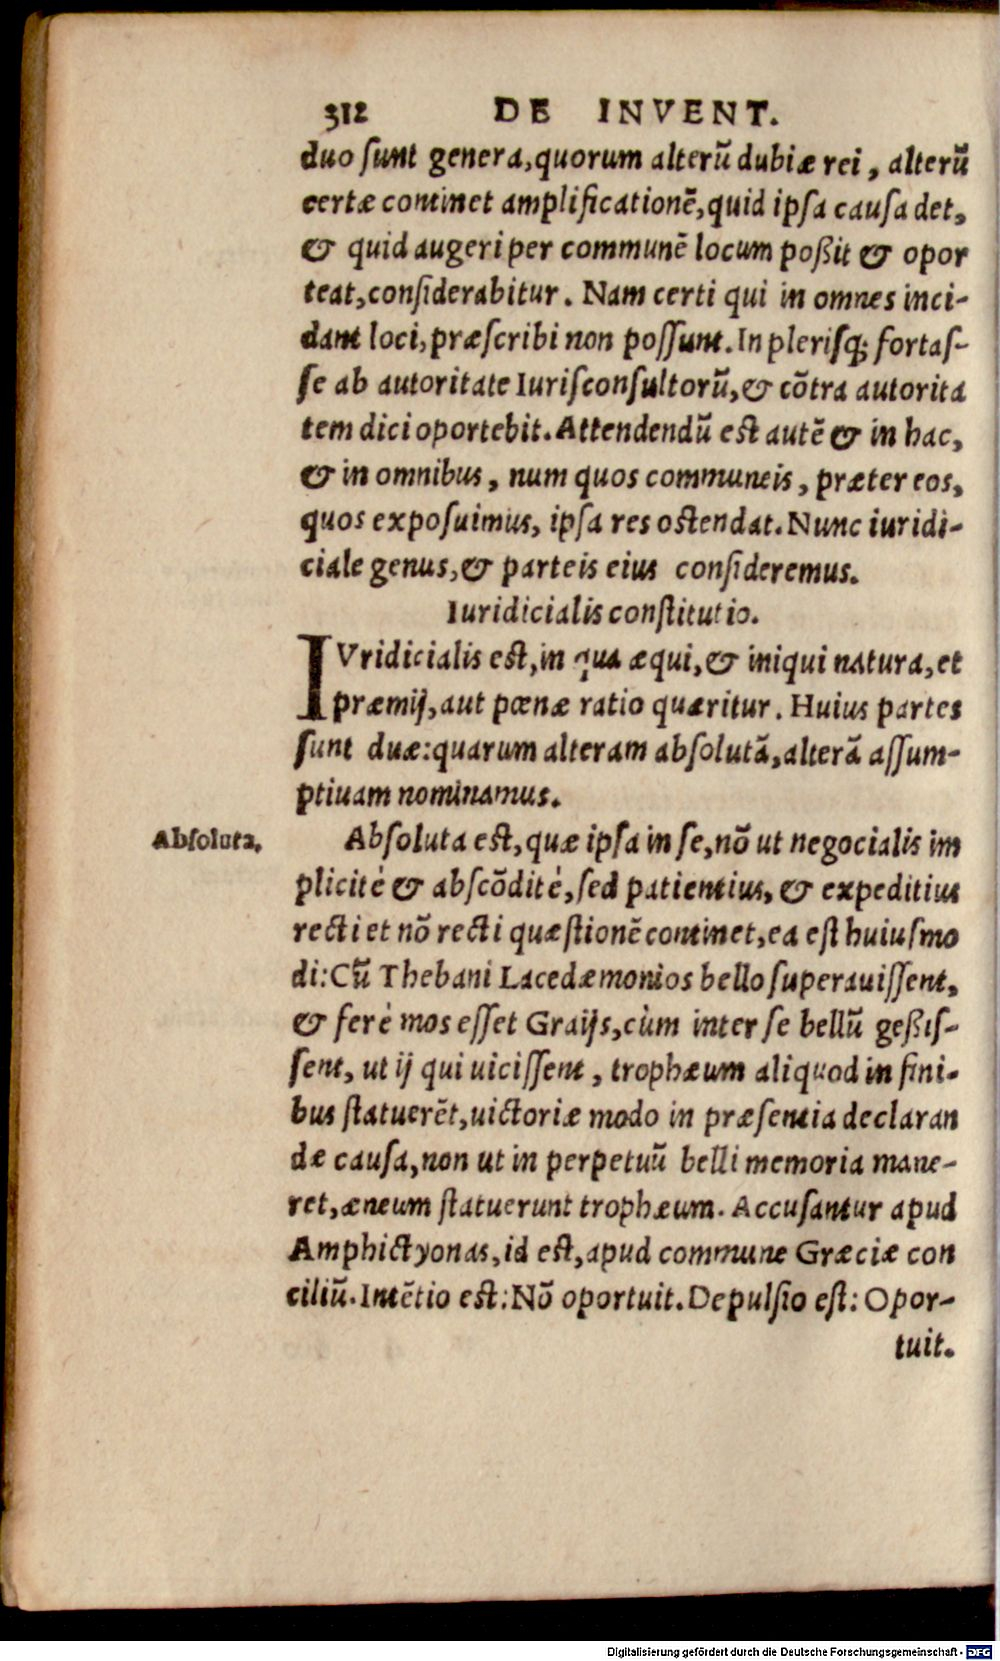 312 DE INVENT.
duo ſunt genera, quorum alterũ dubiæ rei, alterũ
certæ continet amplificationẽ, quid ipſa cauſa det,
& quid augeri per communẽ locum poßit & opor
teat, conſiderabitur. Nam certi qui in omnes inci-
dant loci, præſcribi non poſſunt. In pleriſq; fortaſ-
ſe ab autoritate Iuriſconſultorũ, & cõtra autorita
tem dici oportebit. Attendendũ eſt autẽ & in hac,
& in omnibus, num quos communeis, præter eos,
quos expoſuimus, ipſa res oſtendat. Nunc iuridi-
ciale genus, & parteis eius conſideremus.
Iuridicialis conſtitutio.
IVridicialis eſt, in qua æqui, & iniqui natura, et
præmij, aut pœnæ ratio quæritur. Huius partes
ſunt duæ: quarum alteram abſolutã, alterã aſſum-
ptiuam nominamus.
Abſoluta.
Abſoluta eſt, quæ ipſa in ſe, nõ ut negocialis im
plicitè & abſcõditè, ſed patientius, & expeditius
recti et nõ recti quæſtionẽ continet, ea eſt huiuſmo
di: Cũ Thebani Lacedæmonios bello ſuperauiſſent,
& ferè mos eſſet Graijs, cùm inter ſe bellũ geßiſ-
ſent, ut ij qui uiciſſent, trophæum aliquod in fini-
bus ſtatuerẽt, uictoriæ modo in præſentia declaran
dæ cauſa, non ut in perpetuũ belli memoria mane-
ret, æneum ſtatuerunt trophæum. Accuſantur apud
Amphictyonas, id eſt, apud commune Græciæ con
ciliũ. Intẽtio eſt: Nõ oportuit. Depulſio eſt: Opor-
tuit.
Digitalisierung gefördert durch die Deutsche Forschungsgemeinschaft - DFG